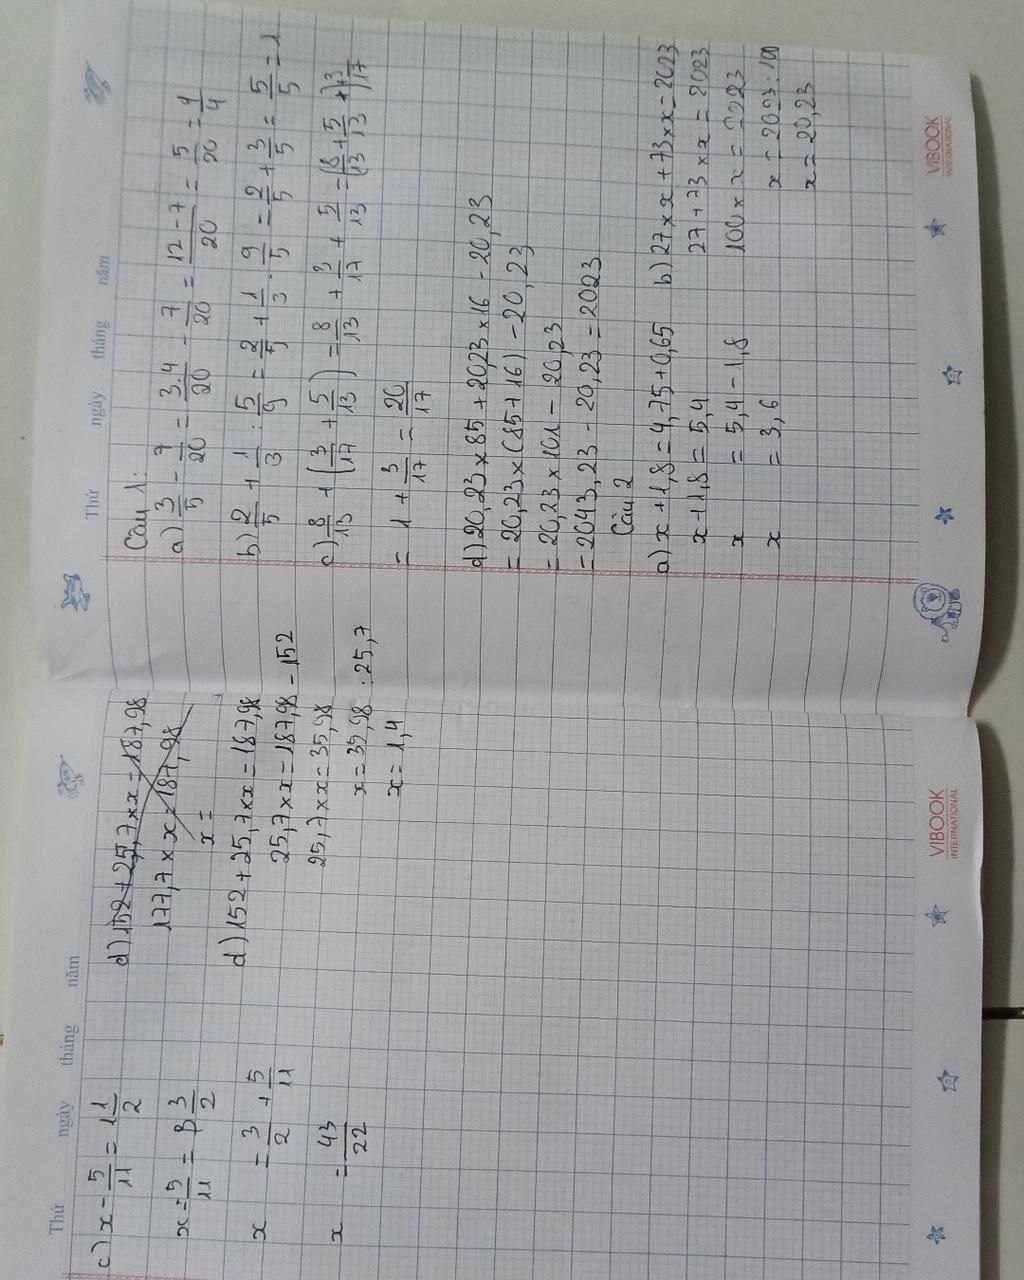 Thứ ngày tháng năm
Câu 1:
a) 3/5 - 7/20 = 3.4/20 - 7/20 = 12-7/20 = 5/20 = 1/4
b) 2/5 + 1/3 : 5/9 = 2/5 + 1/3 . 9/5 = 2/5 + 3/5 = 5/5 = 1
c) 8/13 + (3/17 + 5/13) = 8/13 + 3/17 + 5/13 = (8/13 + 5/13) + 3/17
= 1 + 3/17 = 20/17
d) 20,23 x 85 + 20,23 x 16 - 20,23
= 20,23 x (85 + 16) - 20,23
= 20,23 x 101 - 20,23
= 2043,23 - 20,23 = 2023
Câu 2
a) x + 1,8 = 4,75 + 0,65
x + 1,8 = 5,4
x = 5,4 - 1,8
x = 3,6
b) 27 x x + 73 x x = 2023
27 + 73 x x = 2023
100 x x = 2023
x = 2023 : 100
x = 20,23
VIBOOK
INTERNATIONAL
Thứ ngày tháng năm
c) x - 5/11 = 1 1/2
x - 5/11 = 3/2
x = 3/2 + 5/11
x = 43/22
d) 152 + 25,7 x x = 187,98
177,7 x x = 187,98
x =
d) 152 + 25,7 x x = 187,98
25,7 x x = 187,98 - 152
25,7 x x = 35,98
x = 35,98 : 25,7
x = 1,4
VIBOOK
INTERNATIONAL